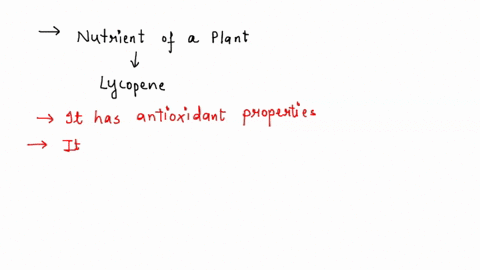 → Nutrient of a Plant
↓
Lycopene
→ It has antioxidant properties
→ It